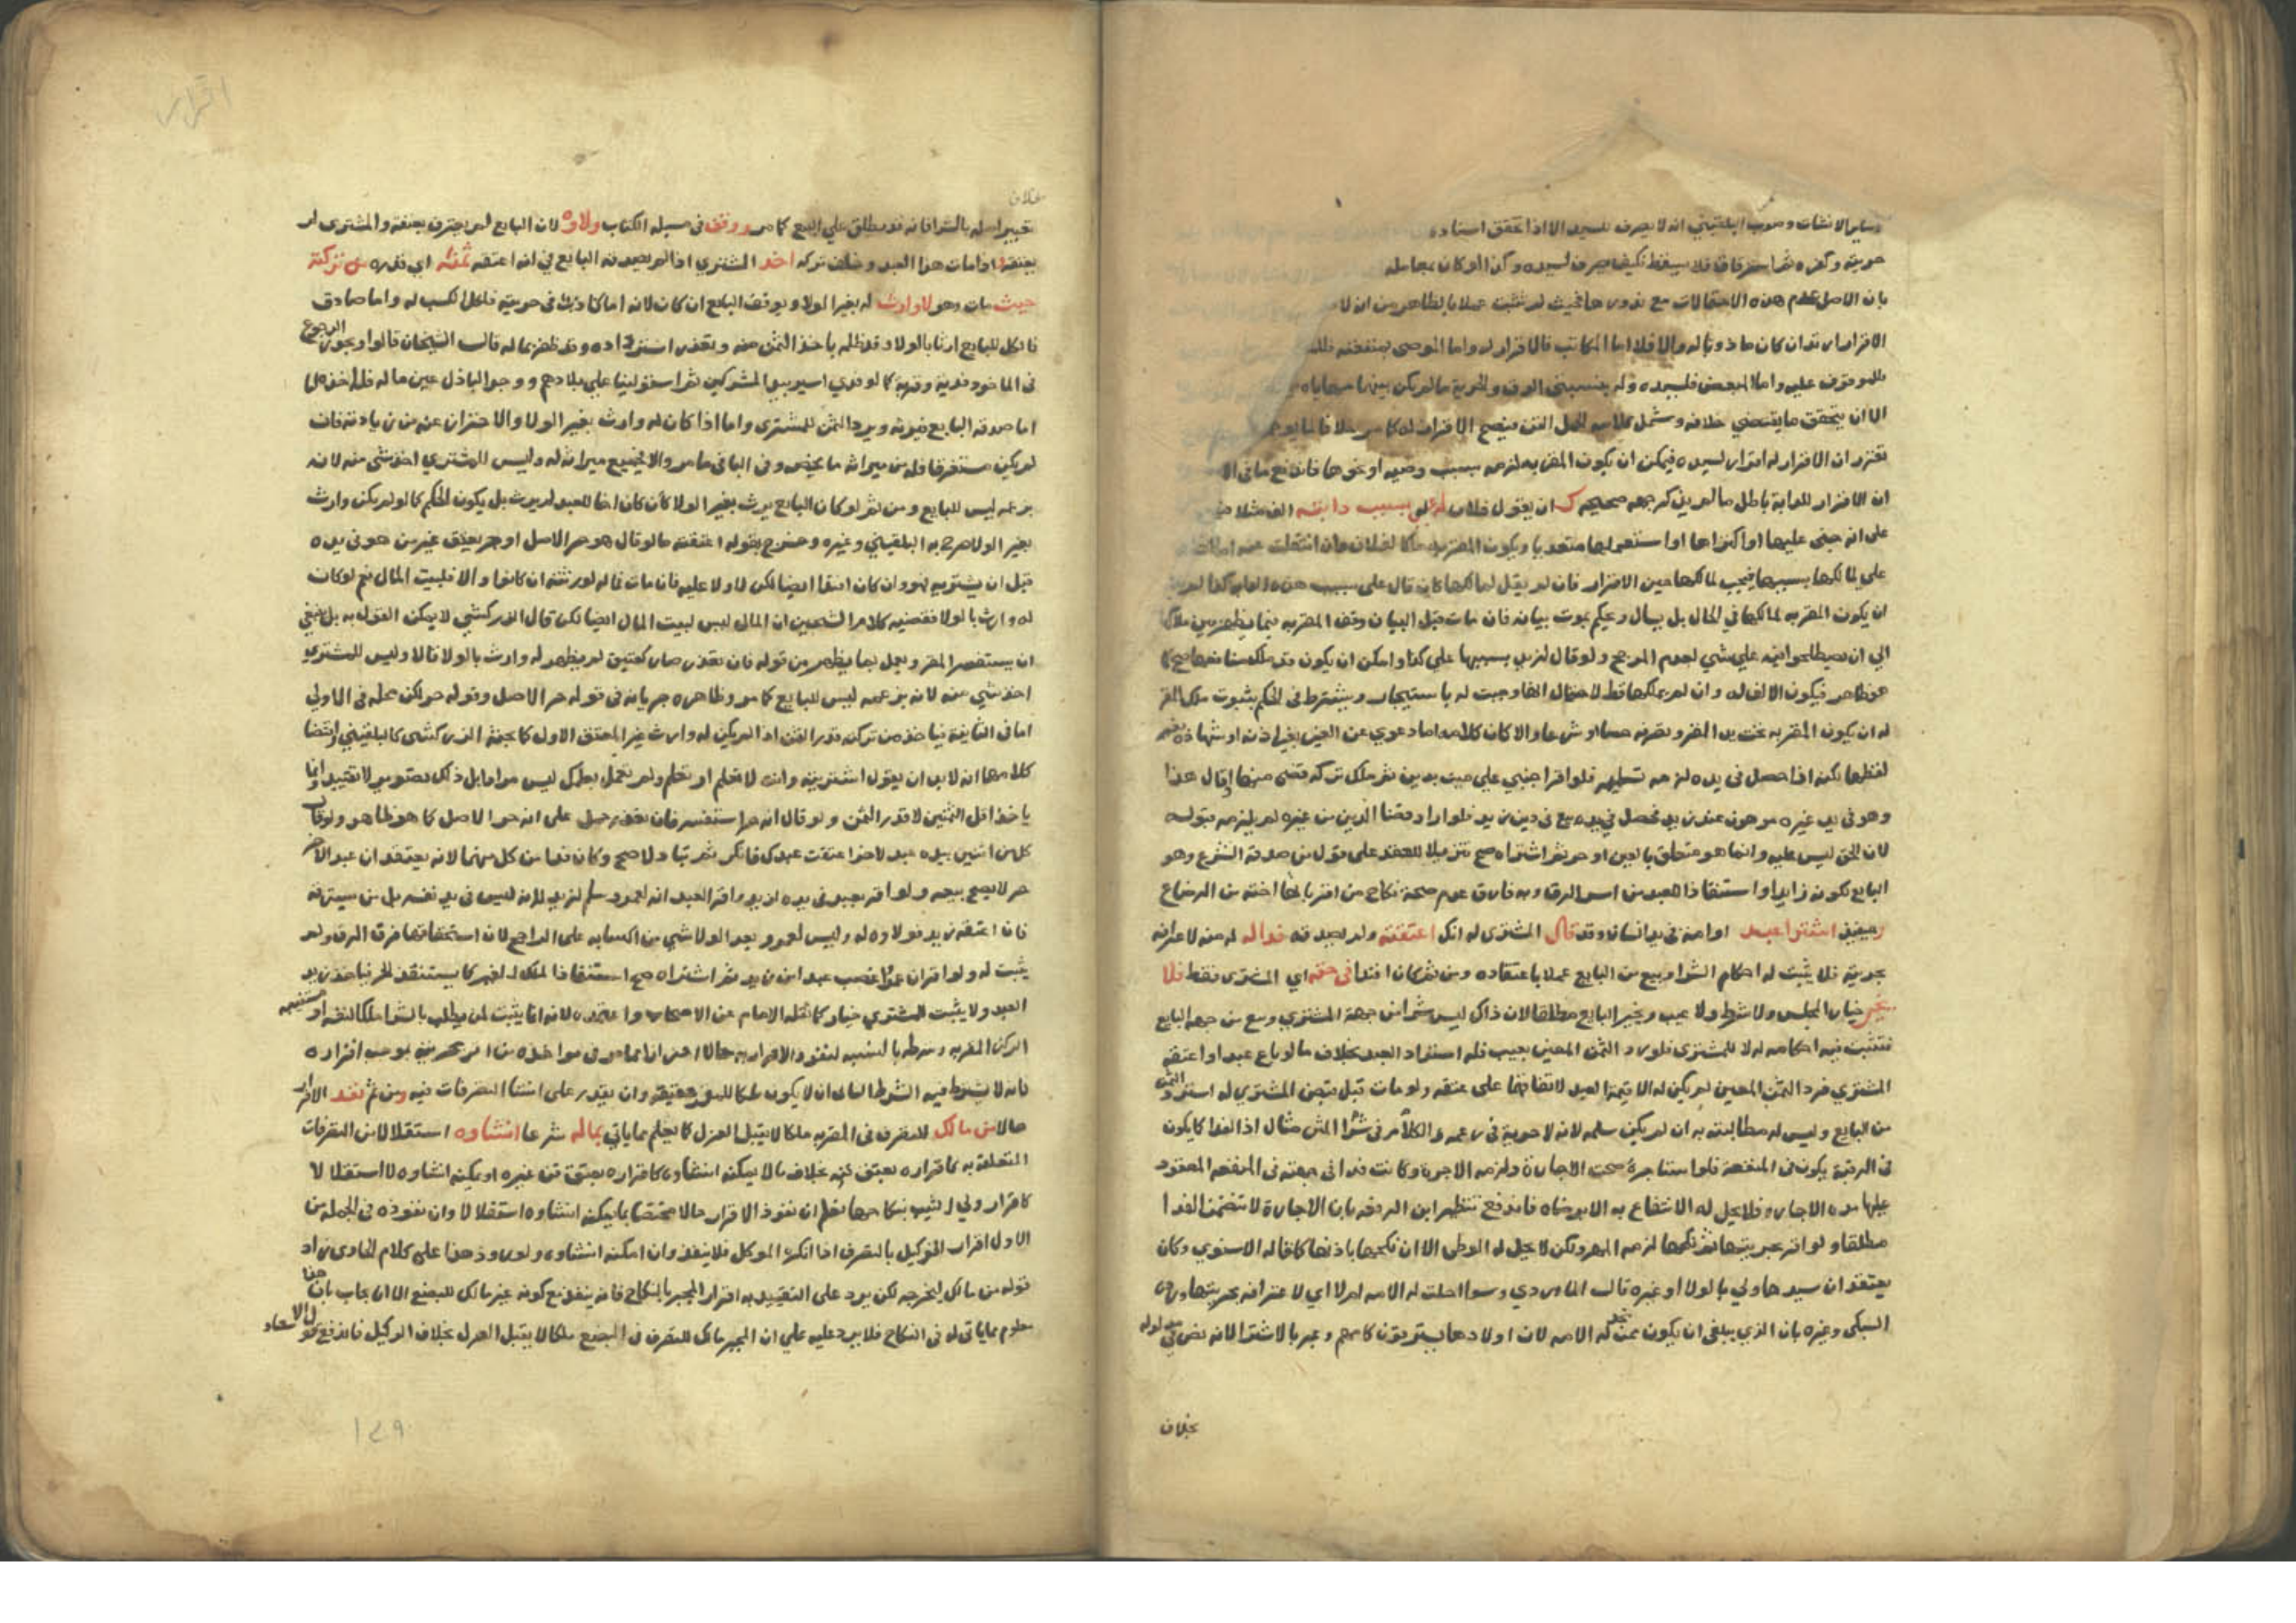 وساير الانشات وصوب البلقيني انه لا يصرف للسيد الا اذا تحقق اسناده
حريته وكفره ثم استرقاق فلا يسقط فكيف يصرف لسيده وكذا لو كان بمعاملة
بان الاصل عدم هذه الاحتمالات مع ندورها فحيث لم تثبت عملا بالظاهر من ان لا
الاقرار ان كان ماذونا له والا فلا اما المكاتب فالاقرار له واما الموصى بمنفعته
للموقوف عليه واما المبعض فلسيده وله بنسبتي الرق والحرية ما لم يكن بينهما مهاياه
الا ان يتحقق ما يقتضي خلافه وشمل كلامه الحمل القن فيصح الاقرار له كما مر خلافا لما يوهم
تقرر ان الاقرار له اقرار لسيده فيمكن ان يكون المقر به لزمه بسبب وصية او نحوها فاندفع ما في الا
ان الاقرار للدابة باطل ما لم يذكر جهة صحيحة كـ ان يقول فلان له علي بسبب دابته الف مثلا
على انه جنى عليها او اكتراها او استعملها متعديا ويكون المقر به ملكا لفلان فان انتقلت عنه
على مالكها بسببها فيجب لمالكها حين الاقرار فان لم يقل لمالكها كان قال على بسبب هذه الدابة كذا لم
ان يكون المقر به لمالكها في الحال بل يسال ويحكم بموجب بيانه فان مات قبل البيان وقف المقر به فيما يظهر بين ملاكها
الى ان يصطلحوا فيه على شي لعدم المرجح ولو قال لزيد بسببها علي كذا وامكن ان يكون قد ملك منافعها صح كما
هو ظاهر فيكون الالف له وان لم يملكها قط لاحتمال انها وجبت له باستيجار ويشترط في الحكم بثبوت ملك المقر
له ان يكون المقر به تحت يد المقر وتصرفه حسا او شرعا والا كان كلامه اما دعوي عن الغير بغير اذنه او شهادة بغير
لفظها لكن اذا حصل في يده لزمه تسليمه فلو اقر اجنبي على ميت بدين ثم ملك تركته قضي منها او قال هذا
وهو في يد غيره مرهون عند زيد فحصل في يده بيع في دين زيد فلو اراد قضا الدين من غيره لم يلزمه قبوله
لان الحق ليس عليه وانما هو متعلق بالعين او حر ثم اشتراه صح تنزيلا للعقد على قول من صدقه الشرع وهو
البايع لكونه ذا يد او استنقاذا للعبد من اسر الرق وبه فارق عدم صحة نكاح من اقر بانها اخته من الرضاع
وحينئذ اشترا عبد او امة في يد انسان وقد قال المشتري له انك اعتقته ولم يصدقه فداله له منه لاعترافه
بحريته فلا يثبت له احكام الشرا وبيع من البايع عملا باعتقاده ومن ثم كان افتدا في حقه اي المشتري فقط فلا
يثبت خيار المجلس ولا شرط ولا عيب ويخير البايع مطلقا لان ذلك ليس شرا من جهة المشتري وبيع من جهة البايع
فتثبت فيه احكامه له لا للمشتري فلو رد الثمن المعين بعيب فله استرداد العبد بخلاف ما لو باع عبدا واعتقه
المشتري فرد الثمن المعين لم يكن له الا قيمة العبد لاتفاقهما على عتقه ولو مات قبل قبض المشتري له استرد الثمن
من البايع وليس له مطالبته به ان لم يكن سلمه لانه لا حرية في زعمه والكلام في شرا المثن مثال اذ الفدا كما يكون
في الرقبة يكون في المنفعة فلو استاجره صحت الاجارة ولزمه الاجرة وكانت فدا في جهته في المنفعة المعقود
عليها مدة الاجارة فلا يحل له الانتفاع به الا برضاه فاندفع تنظير ابن الرفعة بان الاجارة لا تتضمن الفدا
مطلقا ولو اقر بحريتها ثم نكحها لزمه المهر ولكن لا يحل له الوطي الا ان نكحها باذنها كما قاله الاسنوي وكان
يعتقد ان سيدها ولي بالولا او غيره قال الماوردي وسوا احلت له الامة ام لا اي لاعترافه بحريتها ورده
السبكي وغيره بان الذي ينبغي ان يكون ممن تحل له الامة لان اولادها يسترقون كامهم وعبر بالاشترا لانه نص في مدلوله
بخلاف
اقرار
بخلاف
تعبير اصله بالشرا فانه قد يطلق علي البيع كما مر ووقف في مسيلة الكتاب ولاوه لان البايع لم يعترف بعتقه والمشتري لم
يعتقه اذا مات هذا العبد وخلف تركة اخذ المشتري اذا لم يصدقه البايع في انه اعتقه ثمنه اي قدره من تركته
حيث مات وهو لا وارث له بغير الولا ويوقف البايع ان كان لانه اما كاذب في حريته فالكل كسب له واما صادق
فالكل للبايع ارثا بالولا وقد ظلمه باخذ الثمن منه وتعذر استرداده وقد ظفر بماله قال الشيخان قالوا ويجوز الرجوع
في الماخوذ فدية وقربة كما لو فدي اسير بيد المشركين ثم استولينا علي بلادهم ووجد الباذل عين ماله فله اخذها
اما صدقه البايع فيرثه ويرد الثمن للمشتري واما اذا كان له وارث بغير الولا والاحتراز عنه من زيادته فان
لم يكن مستغرقا فله من ميراثه ما يخصه وفي الباقي ما مر والا فجميع ميراثه له وليس للمشتري اخذ شي منه لانه
بزعمه ليس للبايع ومن ثم لو كان البايع يرث بغير الولا كان كان اخا للعبد لم يرث بل يكون الحكم كما لو لم يكن وارث
بغير الولا صرح به البلقيني وغيره وخرج بقوله اعتقته ما لو قال هو حر الاصل او حر بعتق غير من هو في يده
قبل ان يشتريه فهو وان كان افتدا ايضا لكن لا ولا عليه فان مات فماله لورثته ان كانوا والا فلبيت المال نعم لو كان
له وارث بالولا فقضية كلام الشيخين ان المال ليس لبيت المال ايضا لكن قال الزركشي لا يمكن القول به بل ينبغي
ان يستفصر المقر ويعمل بما يظهر من قوله فان تعذر صار كعتيق لم يظهر له وارث بالولا قالا وليس للمشتري
اخذ شي منه لانه بزعمه ليس للبايع كما مر وظاهره جريانه في قوله حر الاصل وقوله حر لكن محله في الاولي
اما في الثانية فياخذ من تركته قدر الثمن اذا لم يكن له وارث غير المعتق الاول كما بحثه الزركشي كالبلقيني واقتضا
كلامهما انه لا بد ان يقول اشتريته وانت لا تعلم او تعلم ولم تعمل بعلمك ليس مرادا بل ذلك تصوير لا تقييد وانما
ياخذ اقل الثمنين لا قدر الثمن ولو قال انه حر استفسر فان تعذر حمل على انه حر الاصل كما هو ظاهر ولو قال
كل من اثنين بيده عبد لاخر اعتقت عبدك فانكر ثم تبادلا صح وكان فدا من كل منهما لانه يعتقد ان عبد الاخر
حر لا يصح بيعه ولو اقر بعبد في يده لزيد واقر العبد انه لعمرو سلم لزيد لانه ليس في يد نفسه بل من سيترقه
فان اعتقه زيد فولاوه له وليس لعمرو بعد الولا شي من اكسابه على الراجح لان استحقاقها فرق الرق ولم
يثبت له ولو اقر ان عمرا غصب عبد ابن زيد ثم اشتراه صح استنقاذا لملك الغير كما يستنقذ الحر فياخذه زيد
العبد ولا يثبت للمشتري خيار كما نقله الامام عن الاصحاب واعتمدوه لانه انما يثبت لمن يطلب بالشرا ملكا لنفسه او مستنيبه
الركن المقر به وشرطه بالنسبة لنفوذ الاقرار به حالا احترازا عما مر في مواخذة من اقر بحرية بموجب اقراره
فانه لا يشترط فيه الشرط السابق ان لا يكون ملكا للمقر حقيقة وان يقدر على انشا التصرفات فيه ومن ثم نفذ الاقرار
حالا من مالك للتصرف في المقر به ملكا لا يقبل العزل كما يعلم مما ياتي بماله شرعا انشاوه استقلالا من التصرفات
المتعلقة به كاقراره بعتق قنه بخلاف ما لا يمكنه انشاوه كاقراره بعتق قن غيره او يمكنه انشاوه لا استقلالا
كاقرار ولي الثيب بنكاحها فعلم ان نفوذ الاقرار حالا مختص بما يمكنه انشاوه استقلالا وان نفوذه في الجملة من
الاول اقرار الوكيل بالتصرف اذا انكره الموكل فلا ينفذ وان امكنه انشاوه وهذا على كلام الحاوي زاد
قوله من مالك ليخرجه لكن يرد على التقييد به اقرار المجبر بالنكاح فانه ينفذ مع كونه غير مالك للبضع الا ان يجاب بان هذا
معلوم مما ياتي له في النكاح فلا يرد عليه علي ان المجبر مالك للتصرف في البضع ملكا لا يقبل العزل بخلاف الوكيل فاندفع نحو
١٤٩